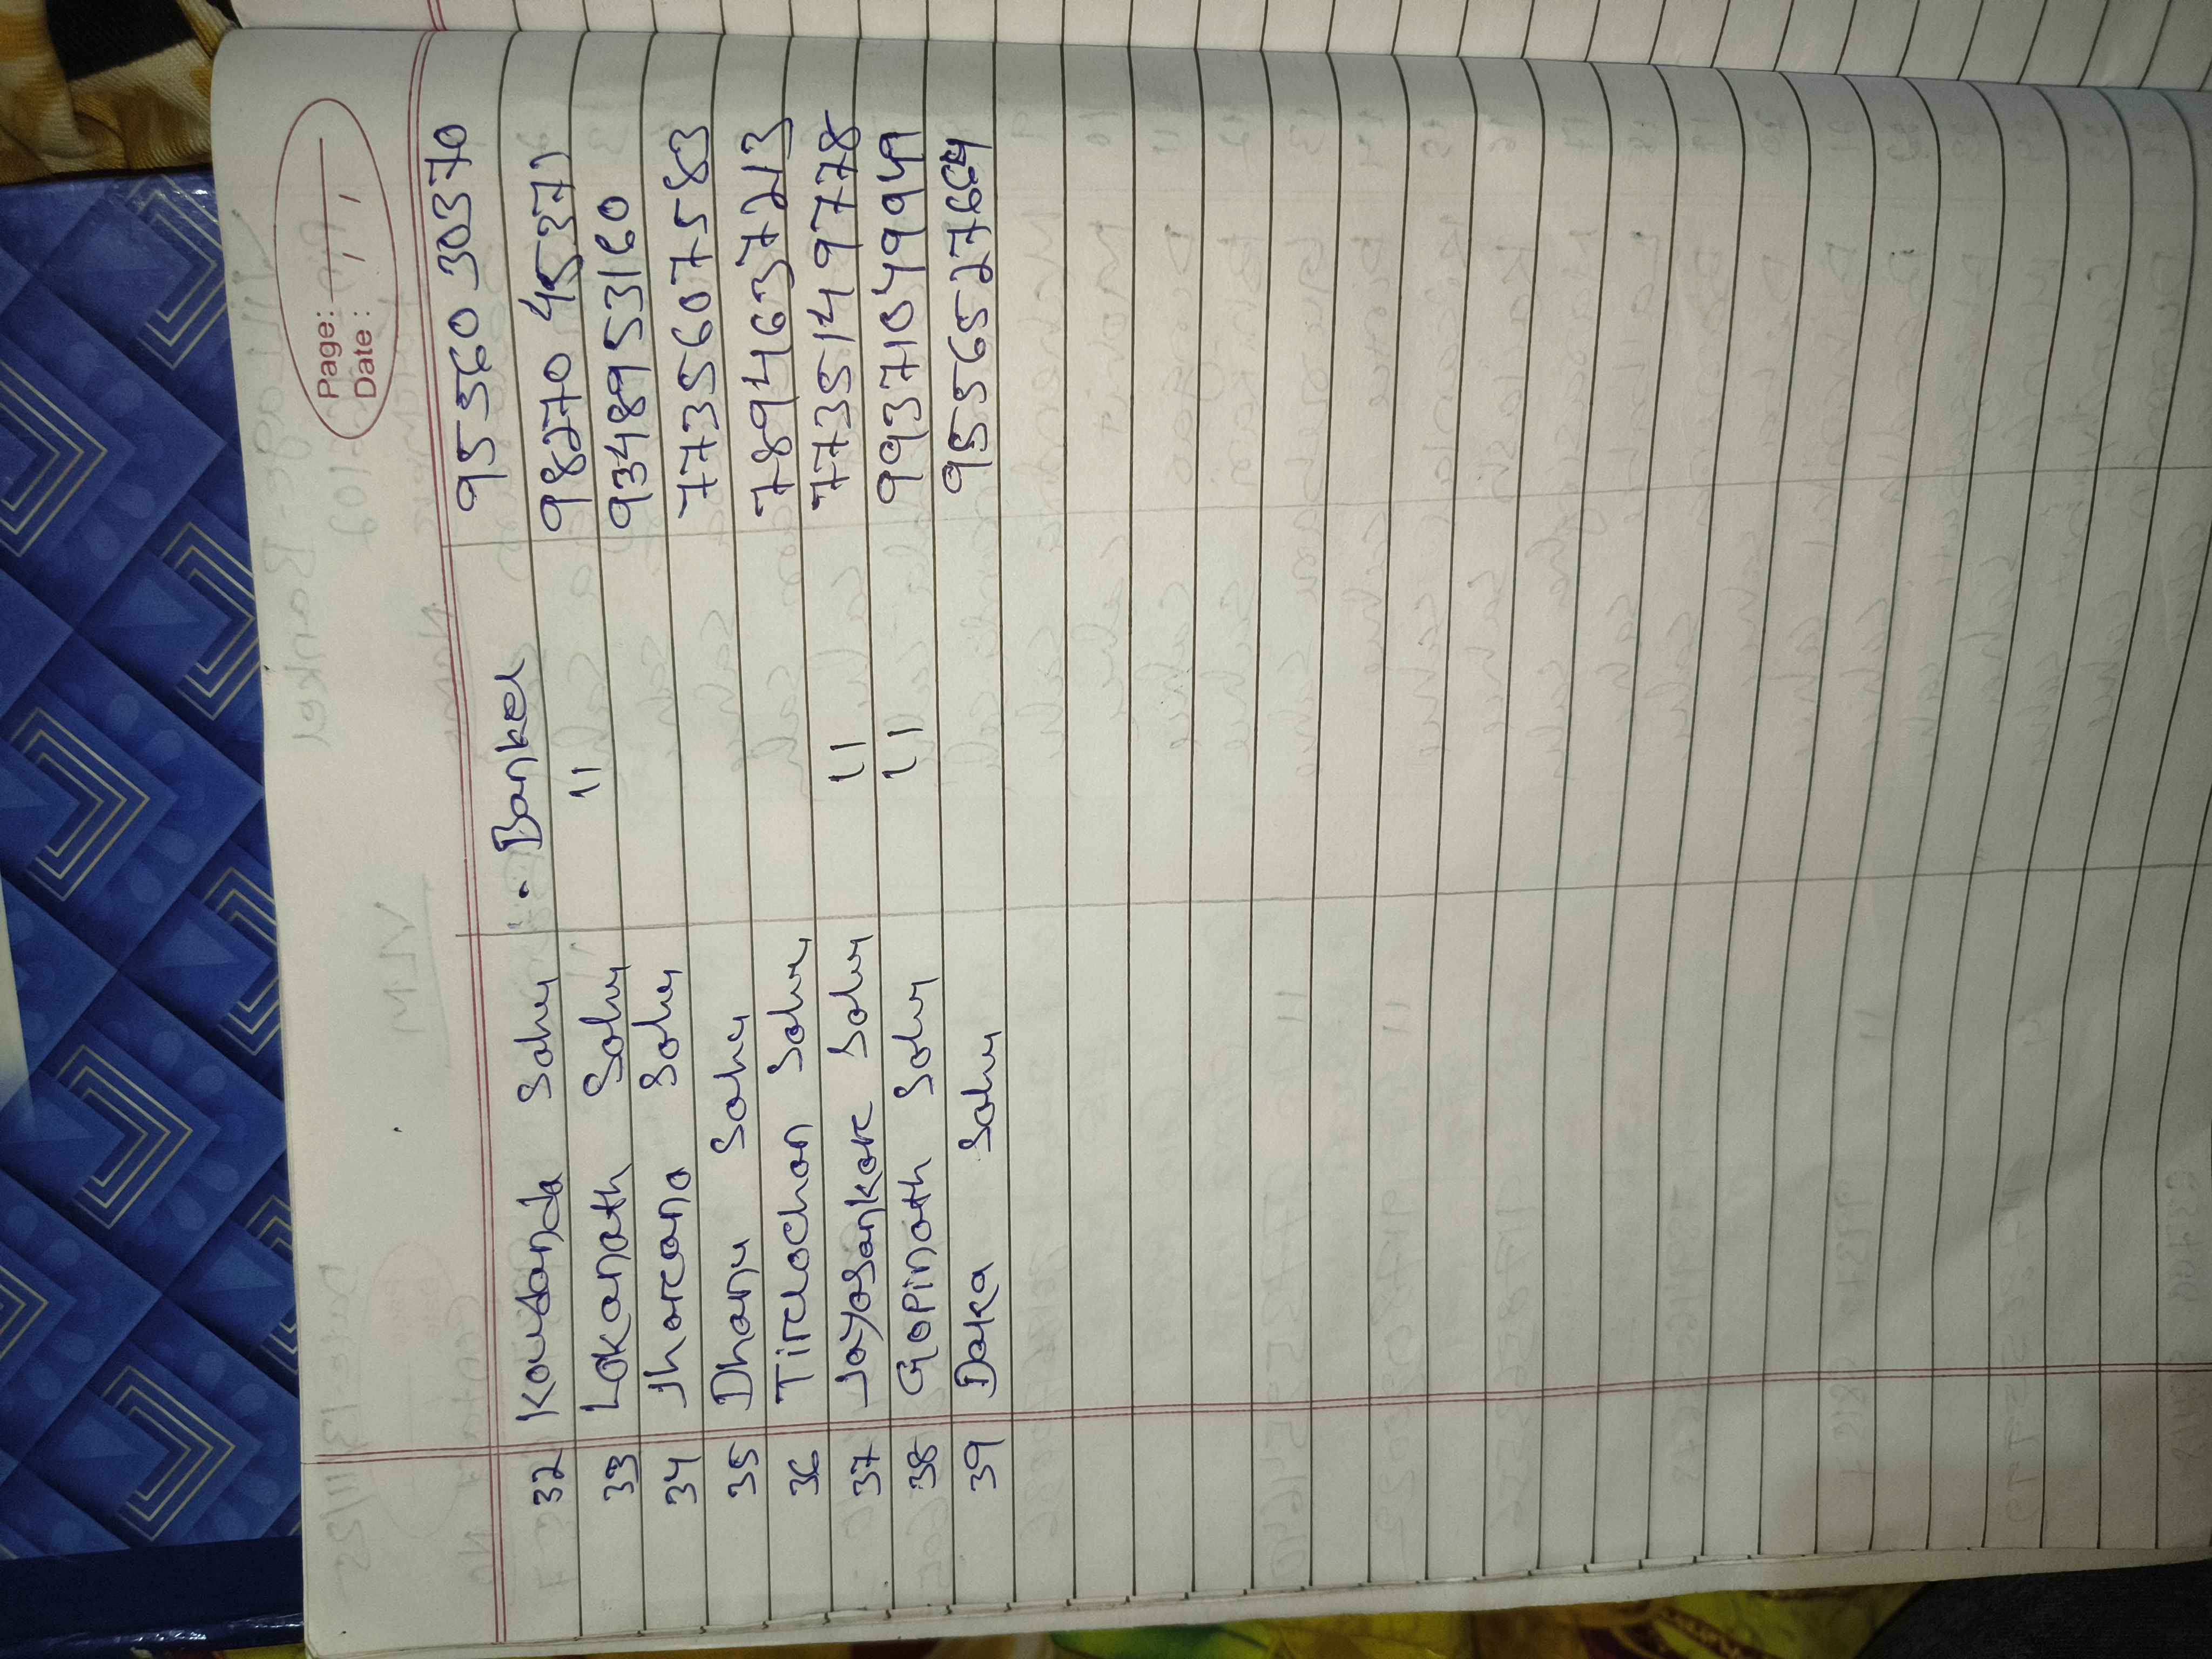 Page:
Date:
32 Koudanda Sahu . Bankel 95560 30370
33 Lokanath Sahu 11 98270 45371
34 Jharcana Sahu 9348953160
35 Dhanu Sahu 7735607583
36 Tirclochan Sahu 7894637213
37 Jayasankar Sahu 11 7735149778
38 Gopinath Sahu 11 9937104994
39 Daka Sahu